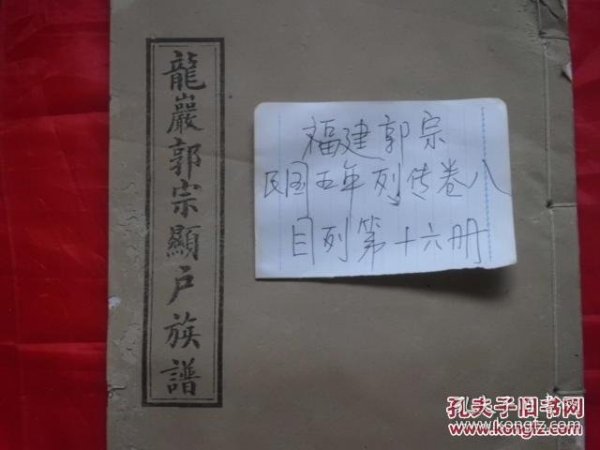 龍巖郭宗顯戶族譜
福建郭宗
民国五年列传卷八
目列第十六册
孔夫子旧书网
www.kongfz.com